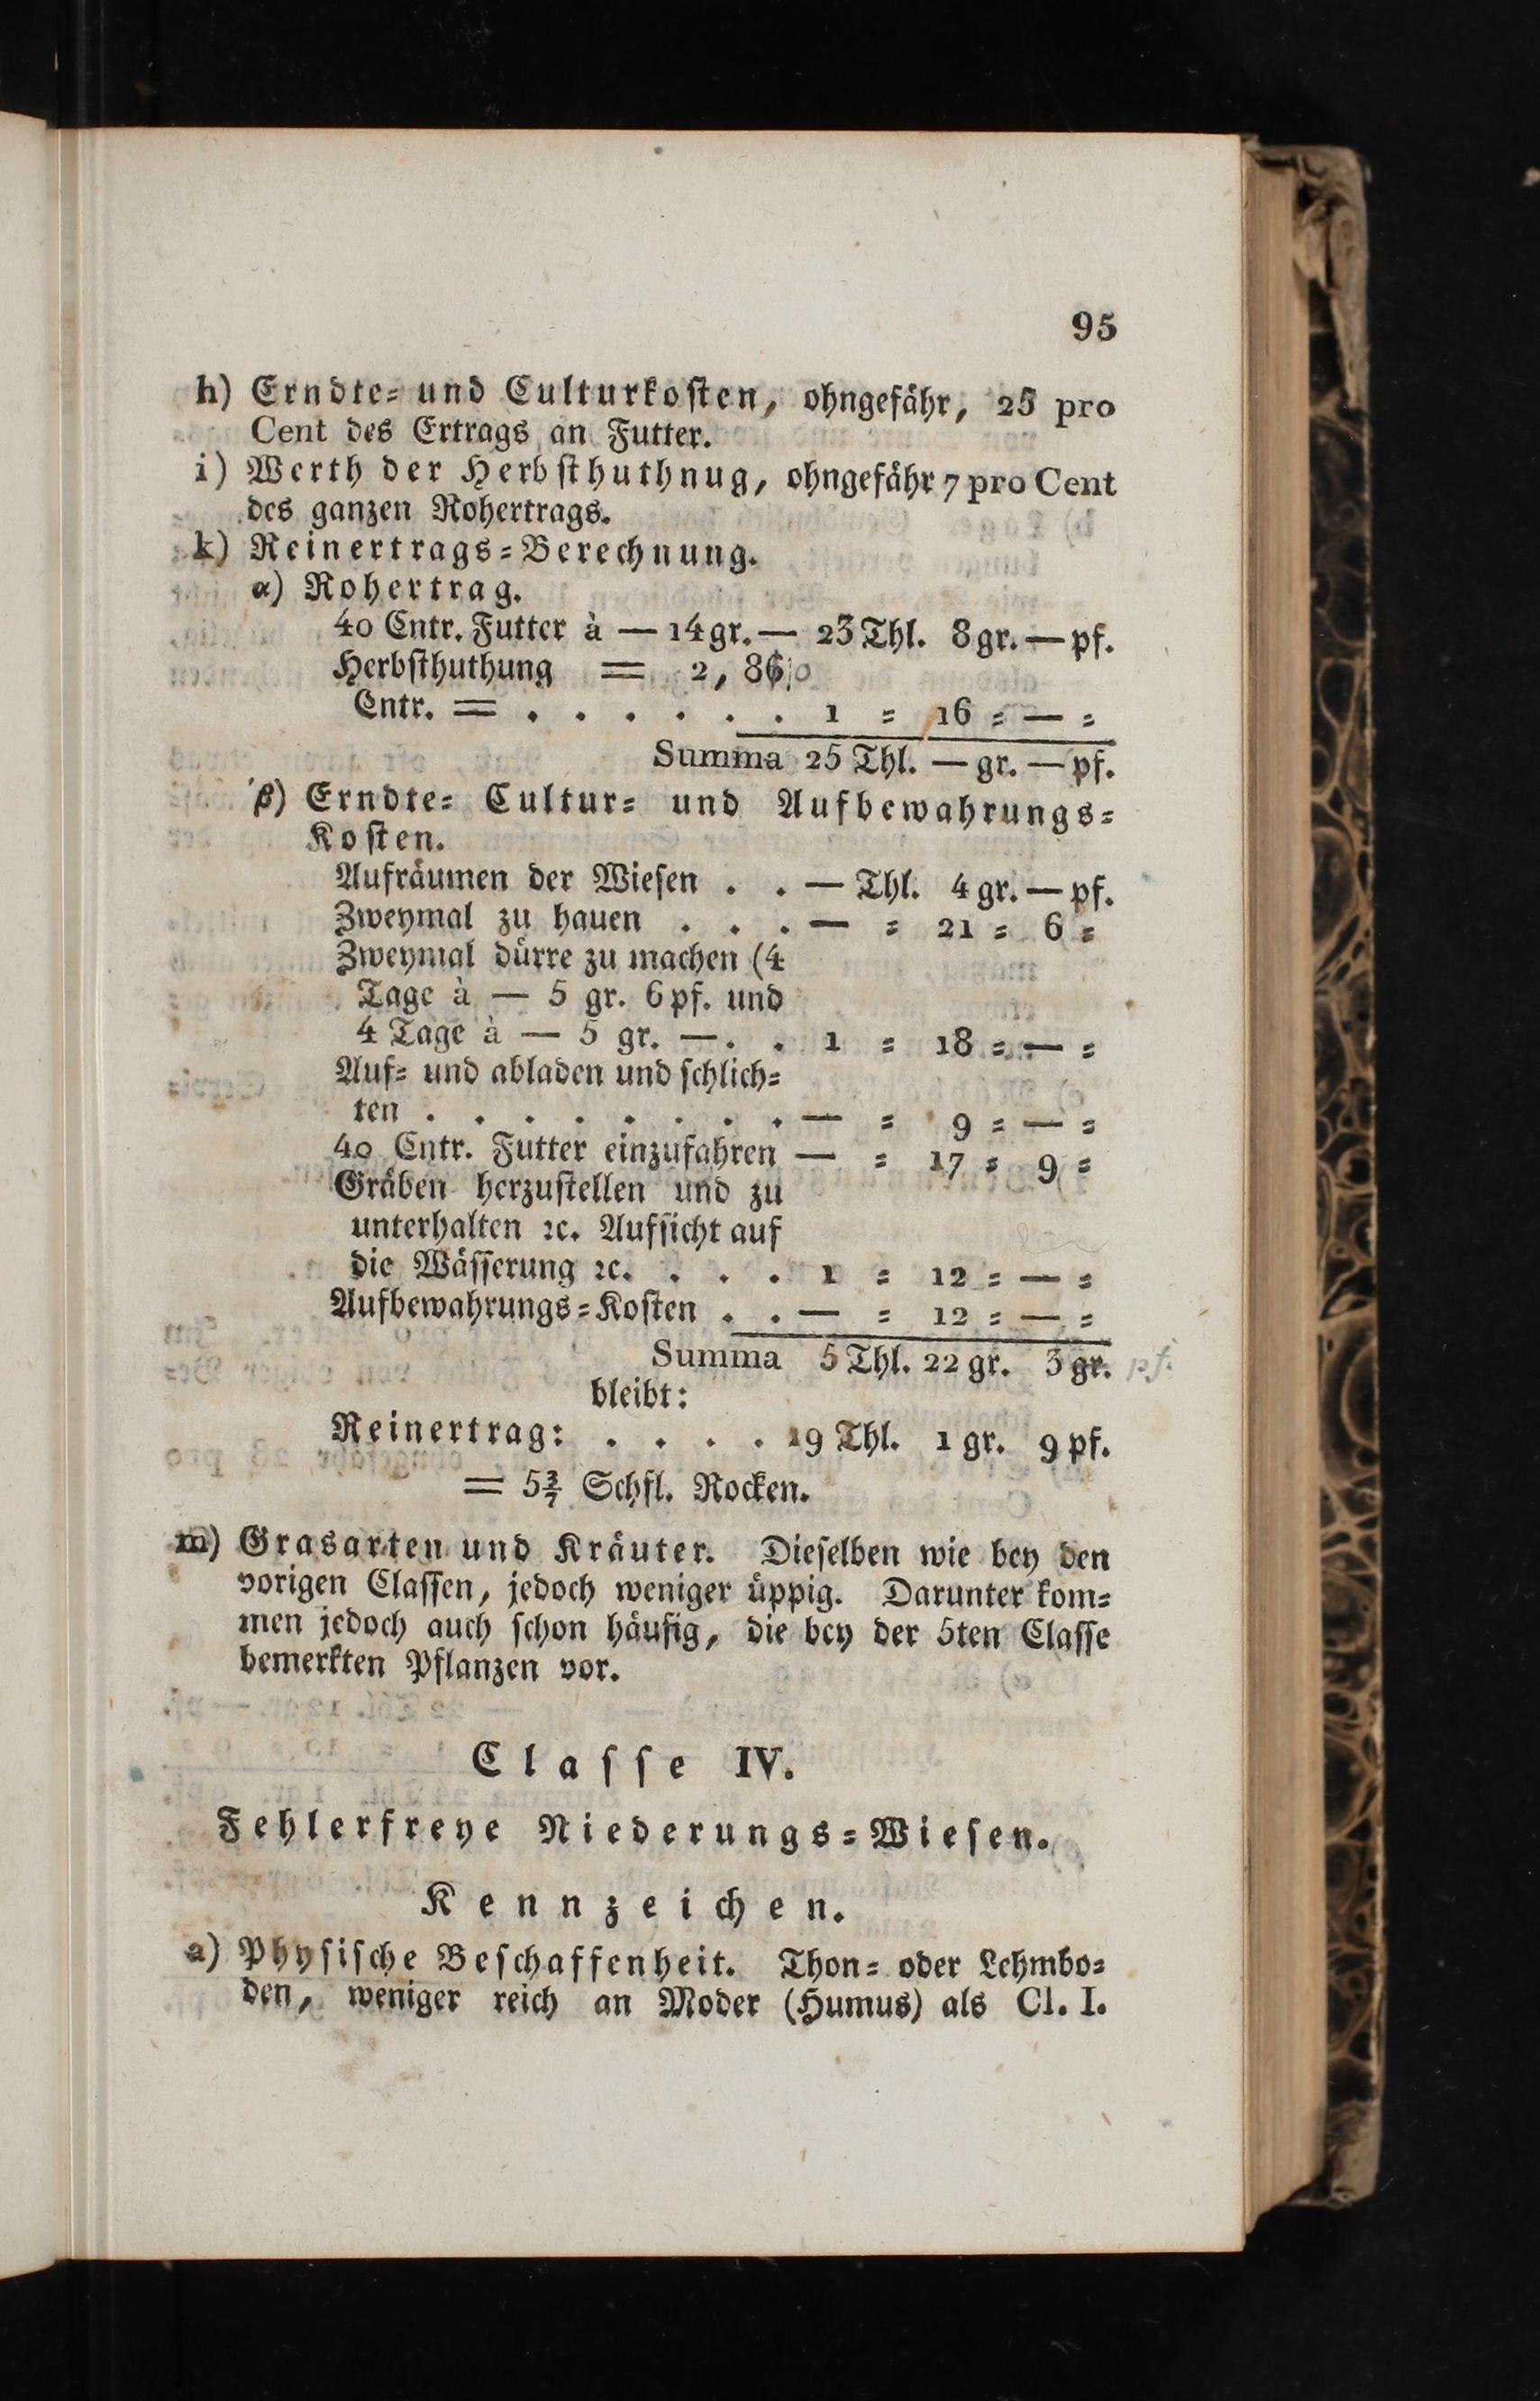 95
h) Erndte- und Culturkosten, ohngefähr, 25 pro
Cent des Ertrags an Futter.
i) Werth der Herbsthuthnug, ohngefähr 7 pro Cent
des ganzen Rohertrags.
k) Reinertrags-Berechnung.
α) Rohertrag.
40 Entr. Futter à — 14 gr. — 23 Thl. 8 gr. — pf.
Herbsthuthung = 2, 860
Entr. = . . . . . . 1 = 16 = — =
Summa 25 Thl. — gr. — pf.
β) Erndte- Cultur- und Aufbewahrungs-
Kosten.
Aufräumen der Wiesen . . — Thl. 4 gr. — pf.
Zweymal zu hauen . . . — = 21 = 6 =
Zweymal dürre zu machen (4
Tage à — 5 gr. 6 pf. und
4 Tage à — 5 gr. —. . 1 = 18 = — =
Auf- und abladen und schlich-
ten . . . . . . . . — = 9 = — =
40 Entr. Futter einzufahren — = 17 = 9 =
Gräben herzustellen und zu
unterhalten ꝛc. Aufsicht auf
die Wässerung ꝛc. . . . 1 = 12 = — =
Aufbewahrungs-Kosten . . — = 12 = — =
Summa 5 Thl. 22 gr. 3 gr. pf.
bleibt:
Reinertrag: . . . . 19 Thl. 1 gr. 9 pf.
= 5 3/7 Schfl. Rocken.
m) Grasarten und Kräuter. Dieselben wie bey den
vorigen Classen, jedoch weniger üppig. Darunter kom-
men jedoch auch schon häufig, die bey der 5ten Classe
bemerkten Pflanzen vor.
Classe IV.
Fehlerfreye Niederungs-Wiesen.
Kennzeichen.
a) Physische Beschaffenheit. Thon- oder Lehmbo-
den, weniger reich an Moder (Humus) als Cl. I.